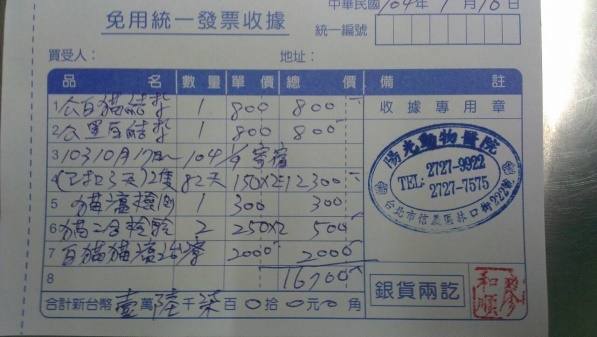 免用統一發票收據
中華民國104年1月16日
統一編號
買受人:
地址:
品名 數量 單價 總價 備註
1 公白貓結扎 1 800 800
收據專用章
2 公黑白結扎 1 800 800
3 103 10月17日~104 1/ 寄宿
4 (已扣3天)2隻 82天 150×2 12300
5 貓瘟檢測 1 300 300
6 貓二合檢驗 2 250×2 500
7 白貓貓瘟治療 2000 2000
8 16700
陽光動物醫院
TEL: 2727-9922
2727-7575
台北市信義區林口街222號
合計新台幣壹萬陸千柒百0拾0元0角
銀貨兩訖
和順